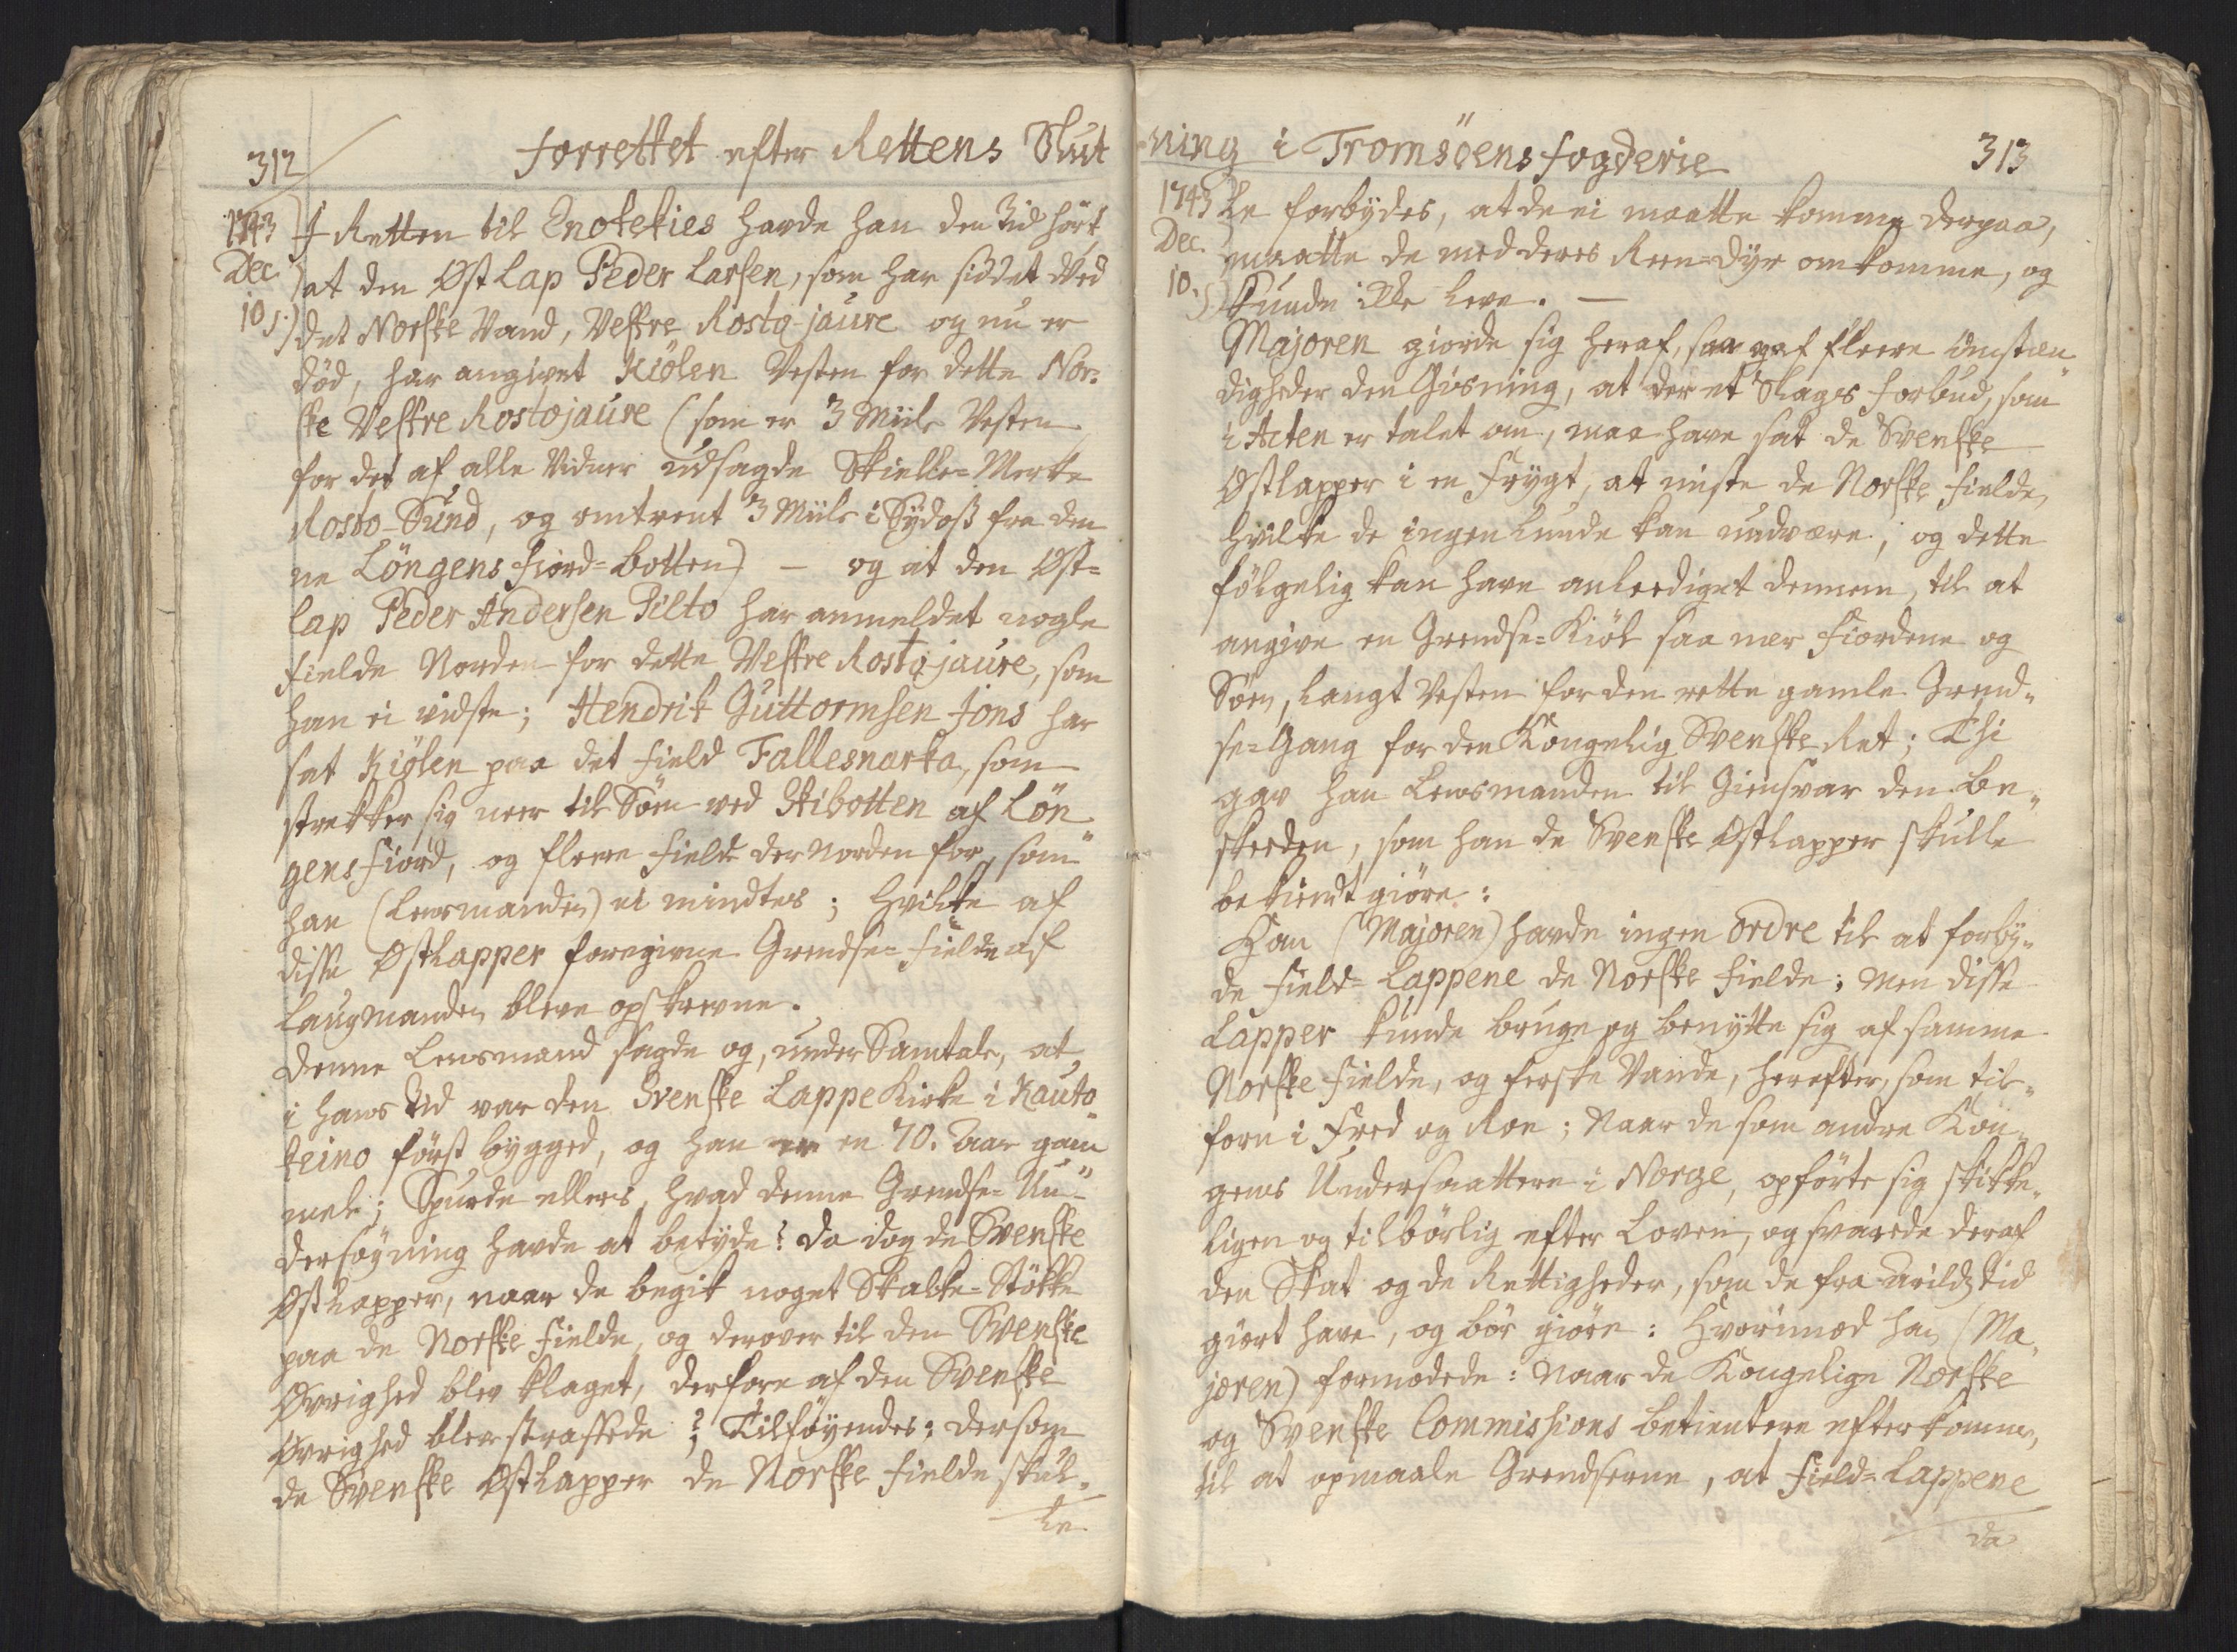 312
forrettet efter Rettens Slut
1743
Dec.
10 s.)
I Retten til Enotekies havde han den Tid hört,
at den Östlap Peder Larsen, som har siddet ved
det Norske Vand, Vestre Rosto-jaure og nu er
död, har angivet Kiölen Vesten for dette Nor-
ske Vestre Rostojaure (som er 3 Miile Vesten
for det af alle Vidner udsagde Skielle-Merke
Rosto-Sund, og omtrent 3 Miile i Sydost fra den-
ne Löngens Fiord-botten) – og at den Öst-
lap Peder Andersen Pilto har anmeldet nogle
Fielde Norden for dette Vestre Rosto-jaure, som
han ei vidste; Hendrik Guttormsen Jons har
sat Kiölen paa det Field Fallesnarka, som
strekker sig neer til Söen ved Skibotten af Lön-
gens Fiord, og fleere Fielde der Norden for, som
han (Lensmanden) ei mindtes; hvilke af
disse Östlapper foregivne Grendse-Fielde af
Laugmanden bleve opskrevne.
Denne Lensmand sagde og, under Samtale, at
i hans Tid var den Svenske Lappe Kirke i Kauto-
keino först bygged, og han er en 70. Aar gam-
mel; Spurde ellers, hvad denne Grendse-Un-
dersögning havde at betyde? da dog de Svenske
Östlapper, naar de begik noget Skalke-Stökke
paa de Norske Fielde, og derover til den Svenske
Övrighed blev klaget, derfore af den Svenske
Övrighed blev straffede? Tilföyendes: dersom
de Svenske Östlapper de Norske Fielde skul-
le
ning i Tromsöens fogderie
313
1743
Dec.
10. s.)
le forbydes, at de ei maatte komme derpaa,
maatte de med deres Reen-dyr omkomme, og
kunde ikke leve. —
Majoren giorde sig heraf, saa og af fleere omstæn-
digheder den Gisning, at der et Slags forbud, som
i Acten er talet om, maa have sat de Svenske
Östlapper i en Frygt, at miste de Norske Fielde,
hvilke de ingenlunde kan undvære, og dette
fölgelig kan have anleediget dennem, til at
angive en Grendse-Kiöl saa nær Fiordene og
Söen, langt Vesten for den rette gamle Grend-
se-Gang for den Kongelig Svenske Ret; Thi
gav han Lensmanden til Giensvar den be-
skeeden, som han de Svenske Östlapper skulle
bekiendtgiöre:
Han (Majoren) havde ingen Ordre til at forby-
de Field-Lappene de Norske Fielde; Men disse
Lapper kunde bruge og benytte sig af samme
Norske Fielde, og ferske Vande, herefter, som til-
forn i Fred og Roe; Naar de som andre Kon-
gens Undersaattere i Norge, opförte sig skikke-
ligen og tilbörlig efter Loven, og svarede deraf
den Skat og de Rettigheder, som de fra Arilds tid
giört have, og bör giöre: Hvorimod han (Ma-
joren) formodede: Naar de Kongelige Norske
og Svenske Commissions betientere efterkomme,
til at opmaale Grendserne, at Field-Lappene
da